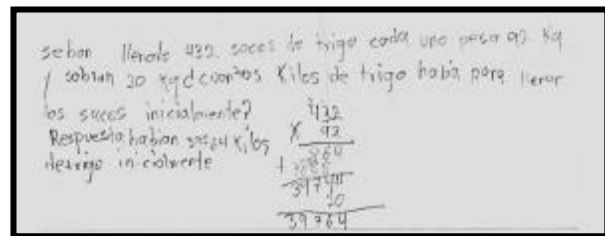 se han llenado 432 sacos de trigo cada uno pesa 92 Kg
y sobran 20 kg d cuantos Kilos de trigo habia para llenar
los sacos inicialmente?
Respuesta habian 39764 Kilos
de trigo inicialmente
432
X 92
864
+ 3888
39744
20
39764